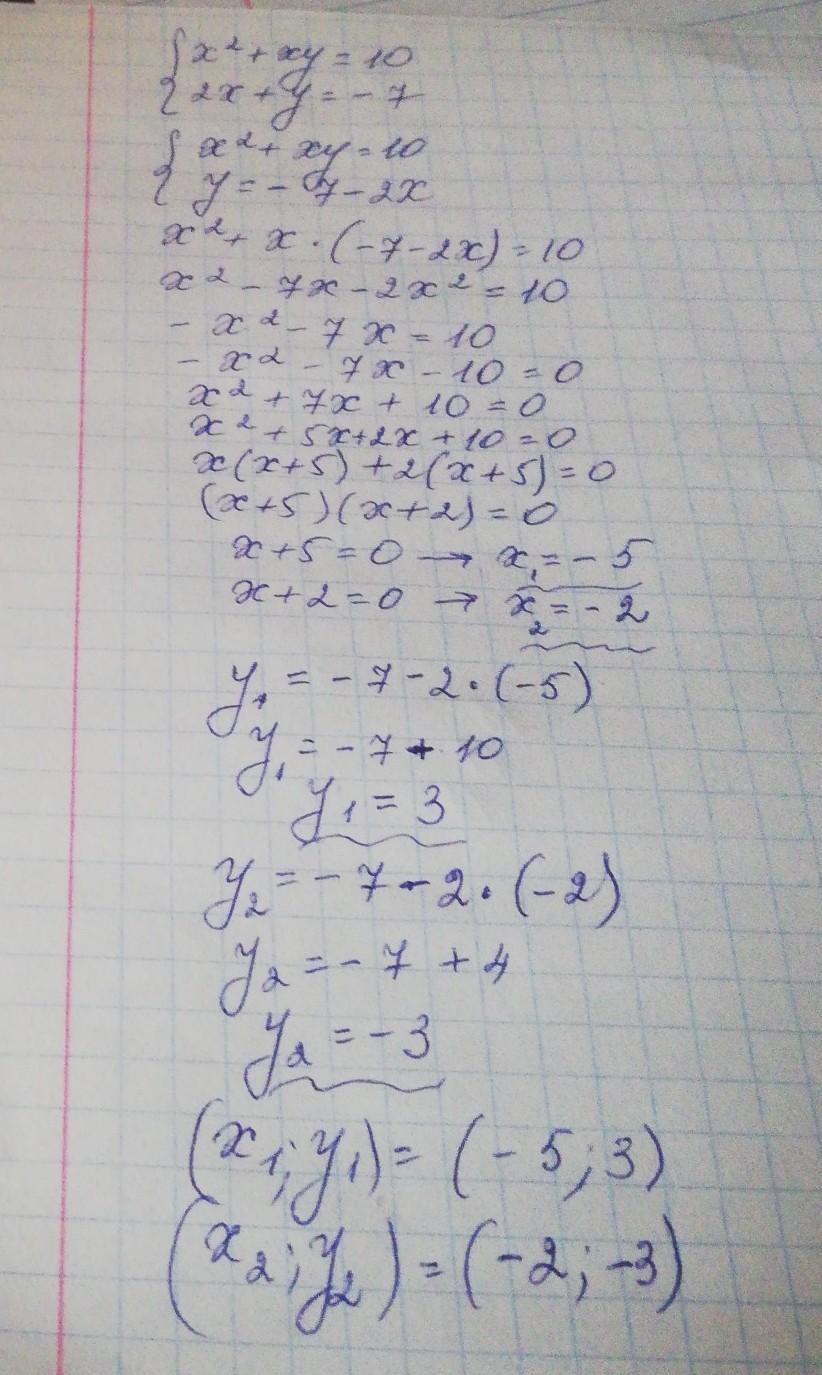 { x² + xy = 10
{ 2x + y = - 7
{ x² + xy = 10
{ y = - 7 - 2x
x² + x · (-7 - 2x) = 10
x² - 7x - 2x² = 10
- x² - 7x = 10
- x² - 7x - 10 = 0
x² + 7x + 10 = 0
x² + 5x + 2x + 10 = 0
x(x+5) + 2(x+5) = 0
(x+5)(x+2) = 0
x + 5 = 0 → x₁ = - 5
x + 2 = 0 → x₂ = - 2
y₁ = - 7 - 2 · (-5)
y₁ = - 7 + 10
y₁ = 3
y₂ = - 7 - 2 · (-2)
y₂ = - 7 + 4
y₂ = - 3
(x₁; y₁) = (- 5; 3)
(x₂; y₂) = (-2; -3)